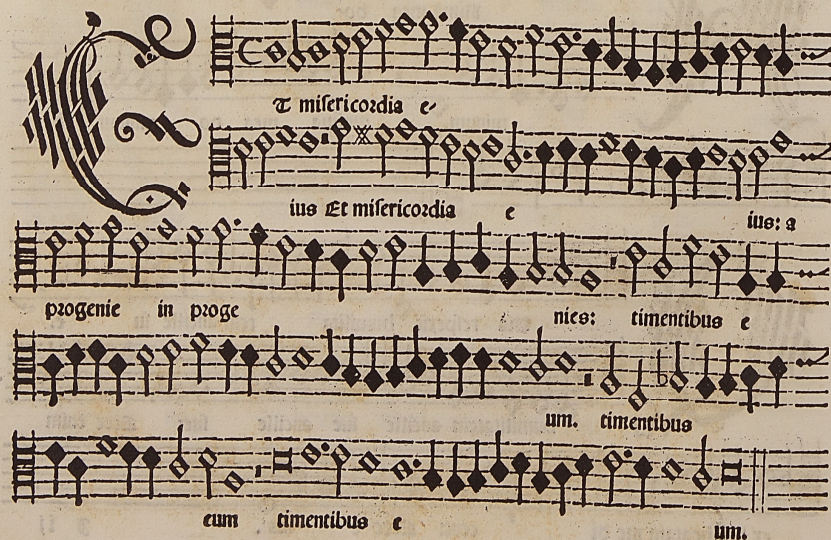 ET misericordia e-
ius Et misericordia e ius: a
progenie in proge nies: timentibus e
um. timentibus
eum timentibus e um.